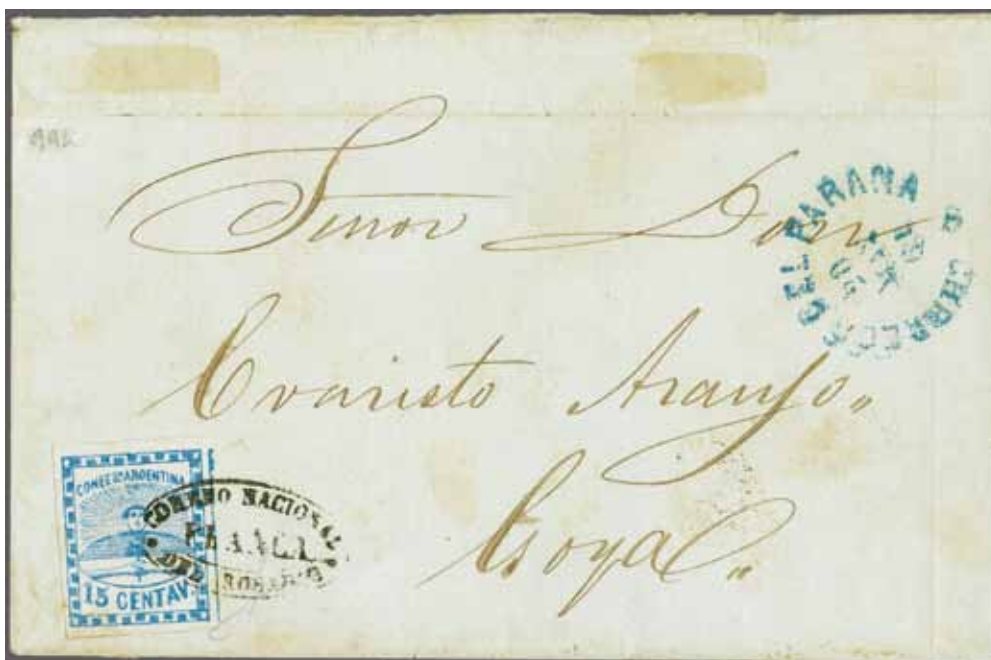 Señor Don
Evaristo Araujo„
Goya„
CORREOS DEL PARANA
CONFEON ARGENTINA
15 CENTAV
CORREO NACIONAL
FRANCA
DEL ROSARIO